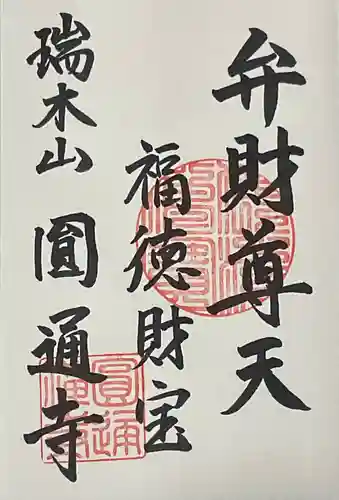 弁財尊天
福徳財宝
瑞木山 圓通寺